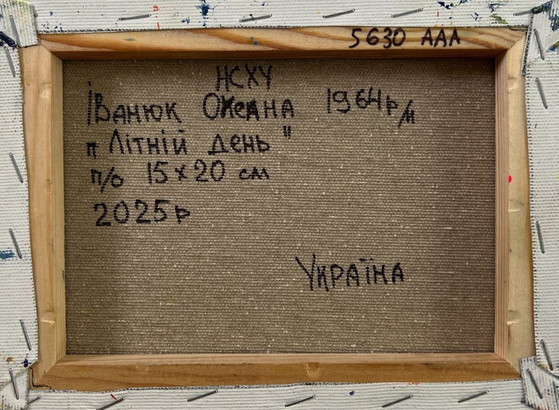 5630 ААА
НСХУ
Іванюк Оксана 1964р/н
"Літній день"
п/о 15х20 см
2025р
Україна